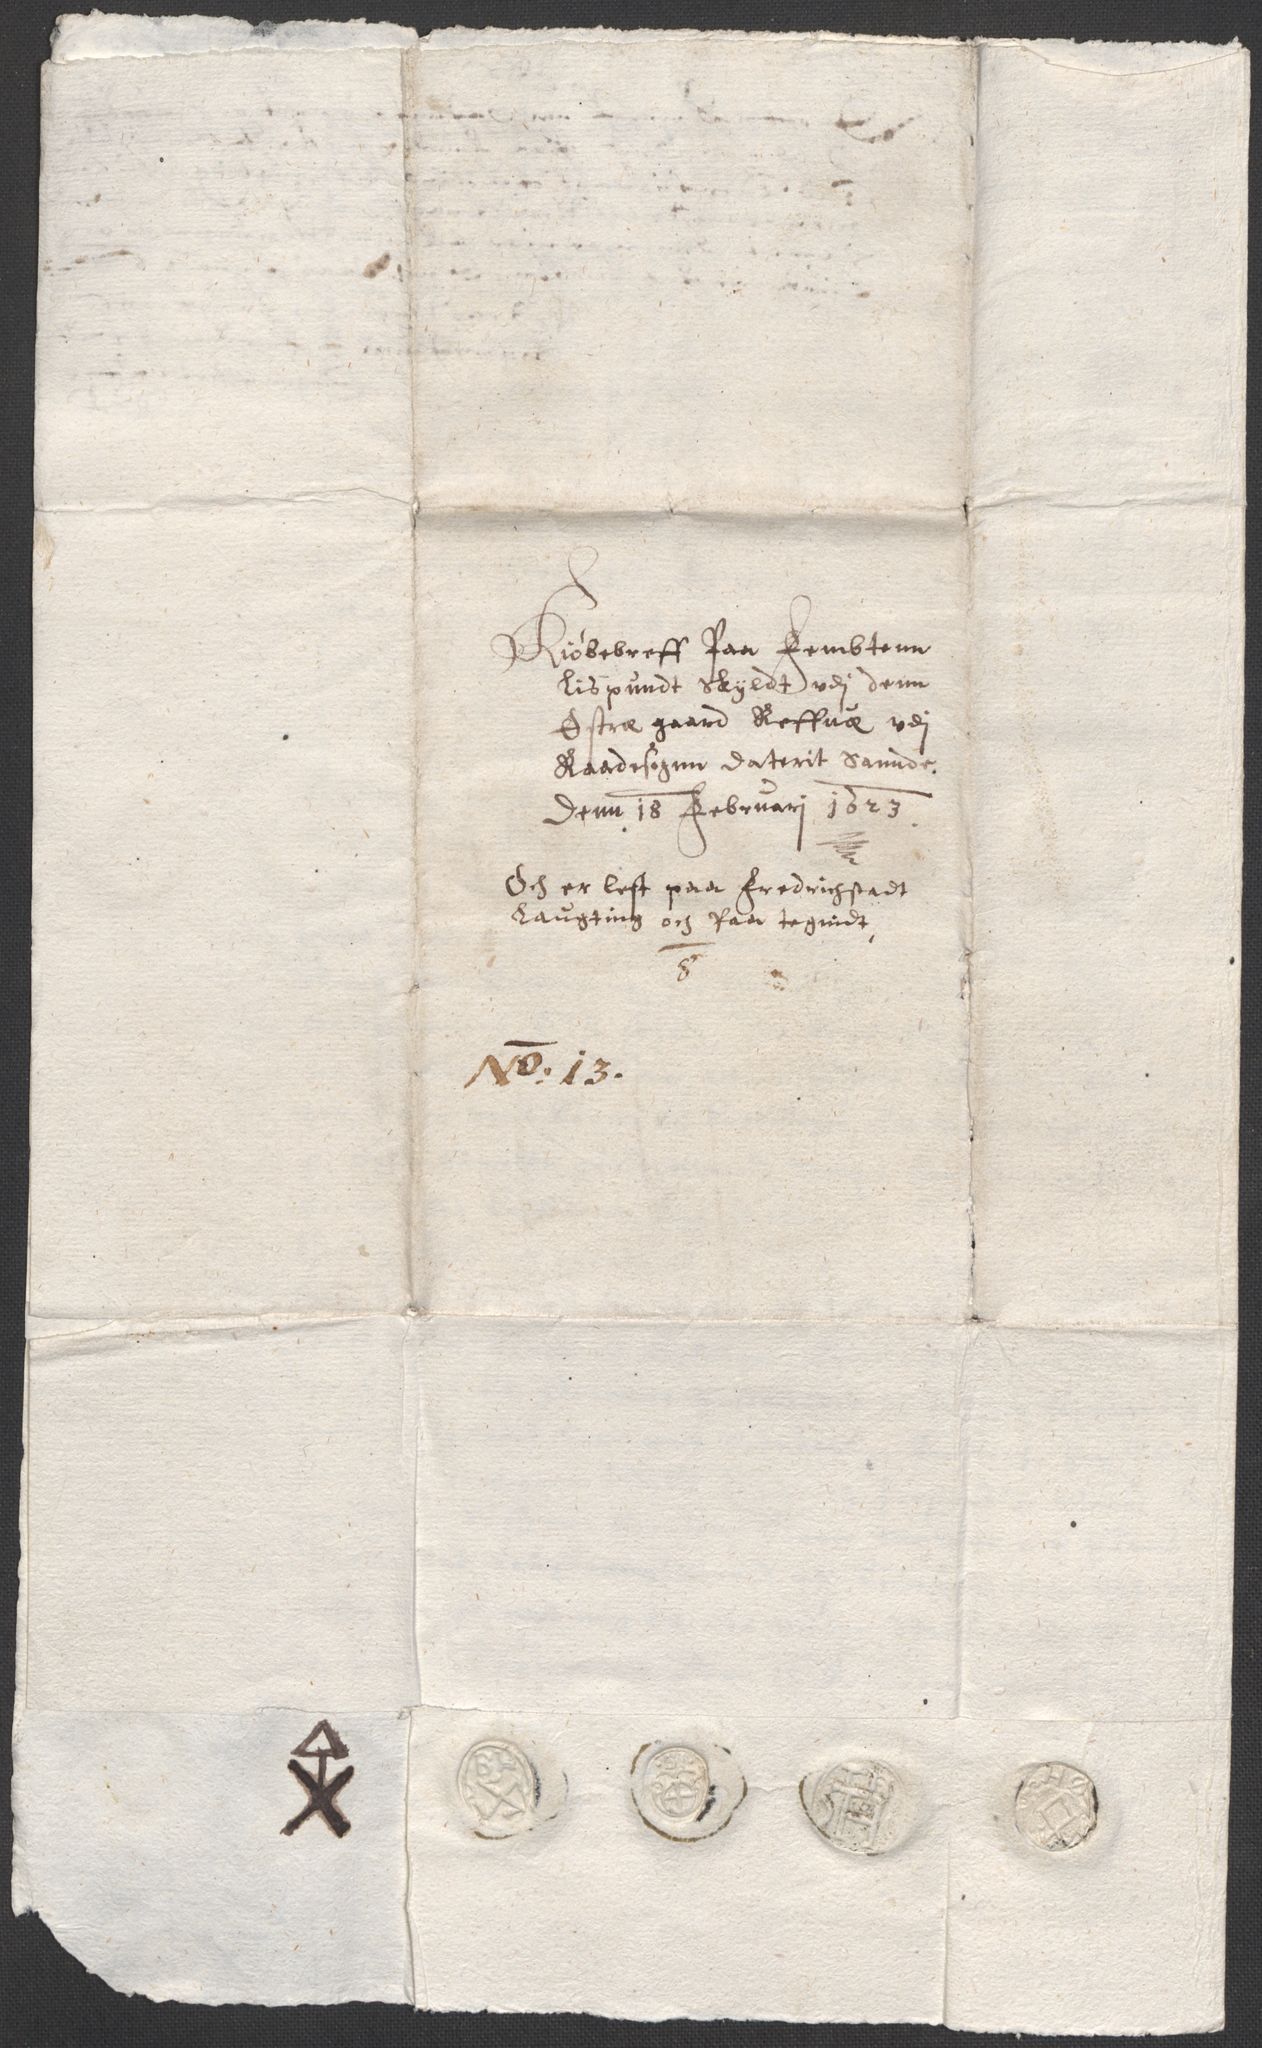 Kiöbebreff Paa Fembtenn
lispundt skyldt vdj denn
Østræ gaard Reffnæ vdj
Raadesognn daterit Sannde.
Denn 18 Februarj 1623
Och er lest paa Fredrichstadt
Laugting och Paa tegnidt,
8
No: 13.